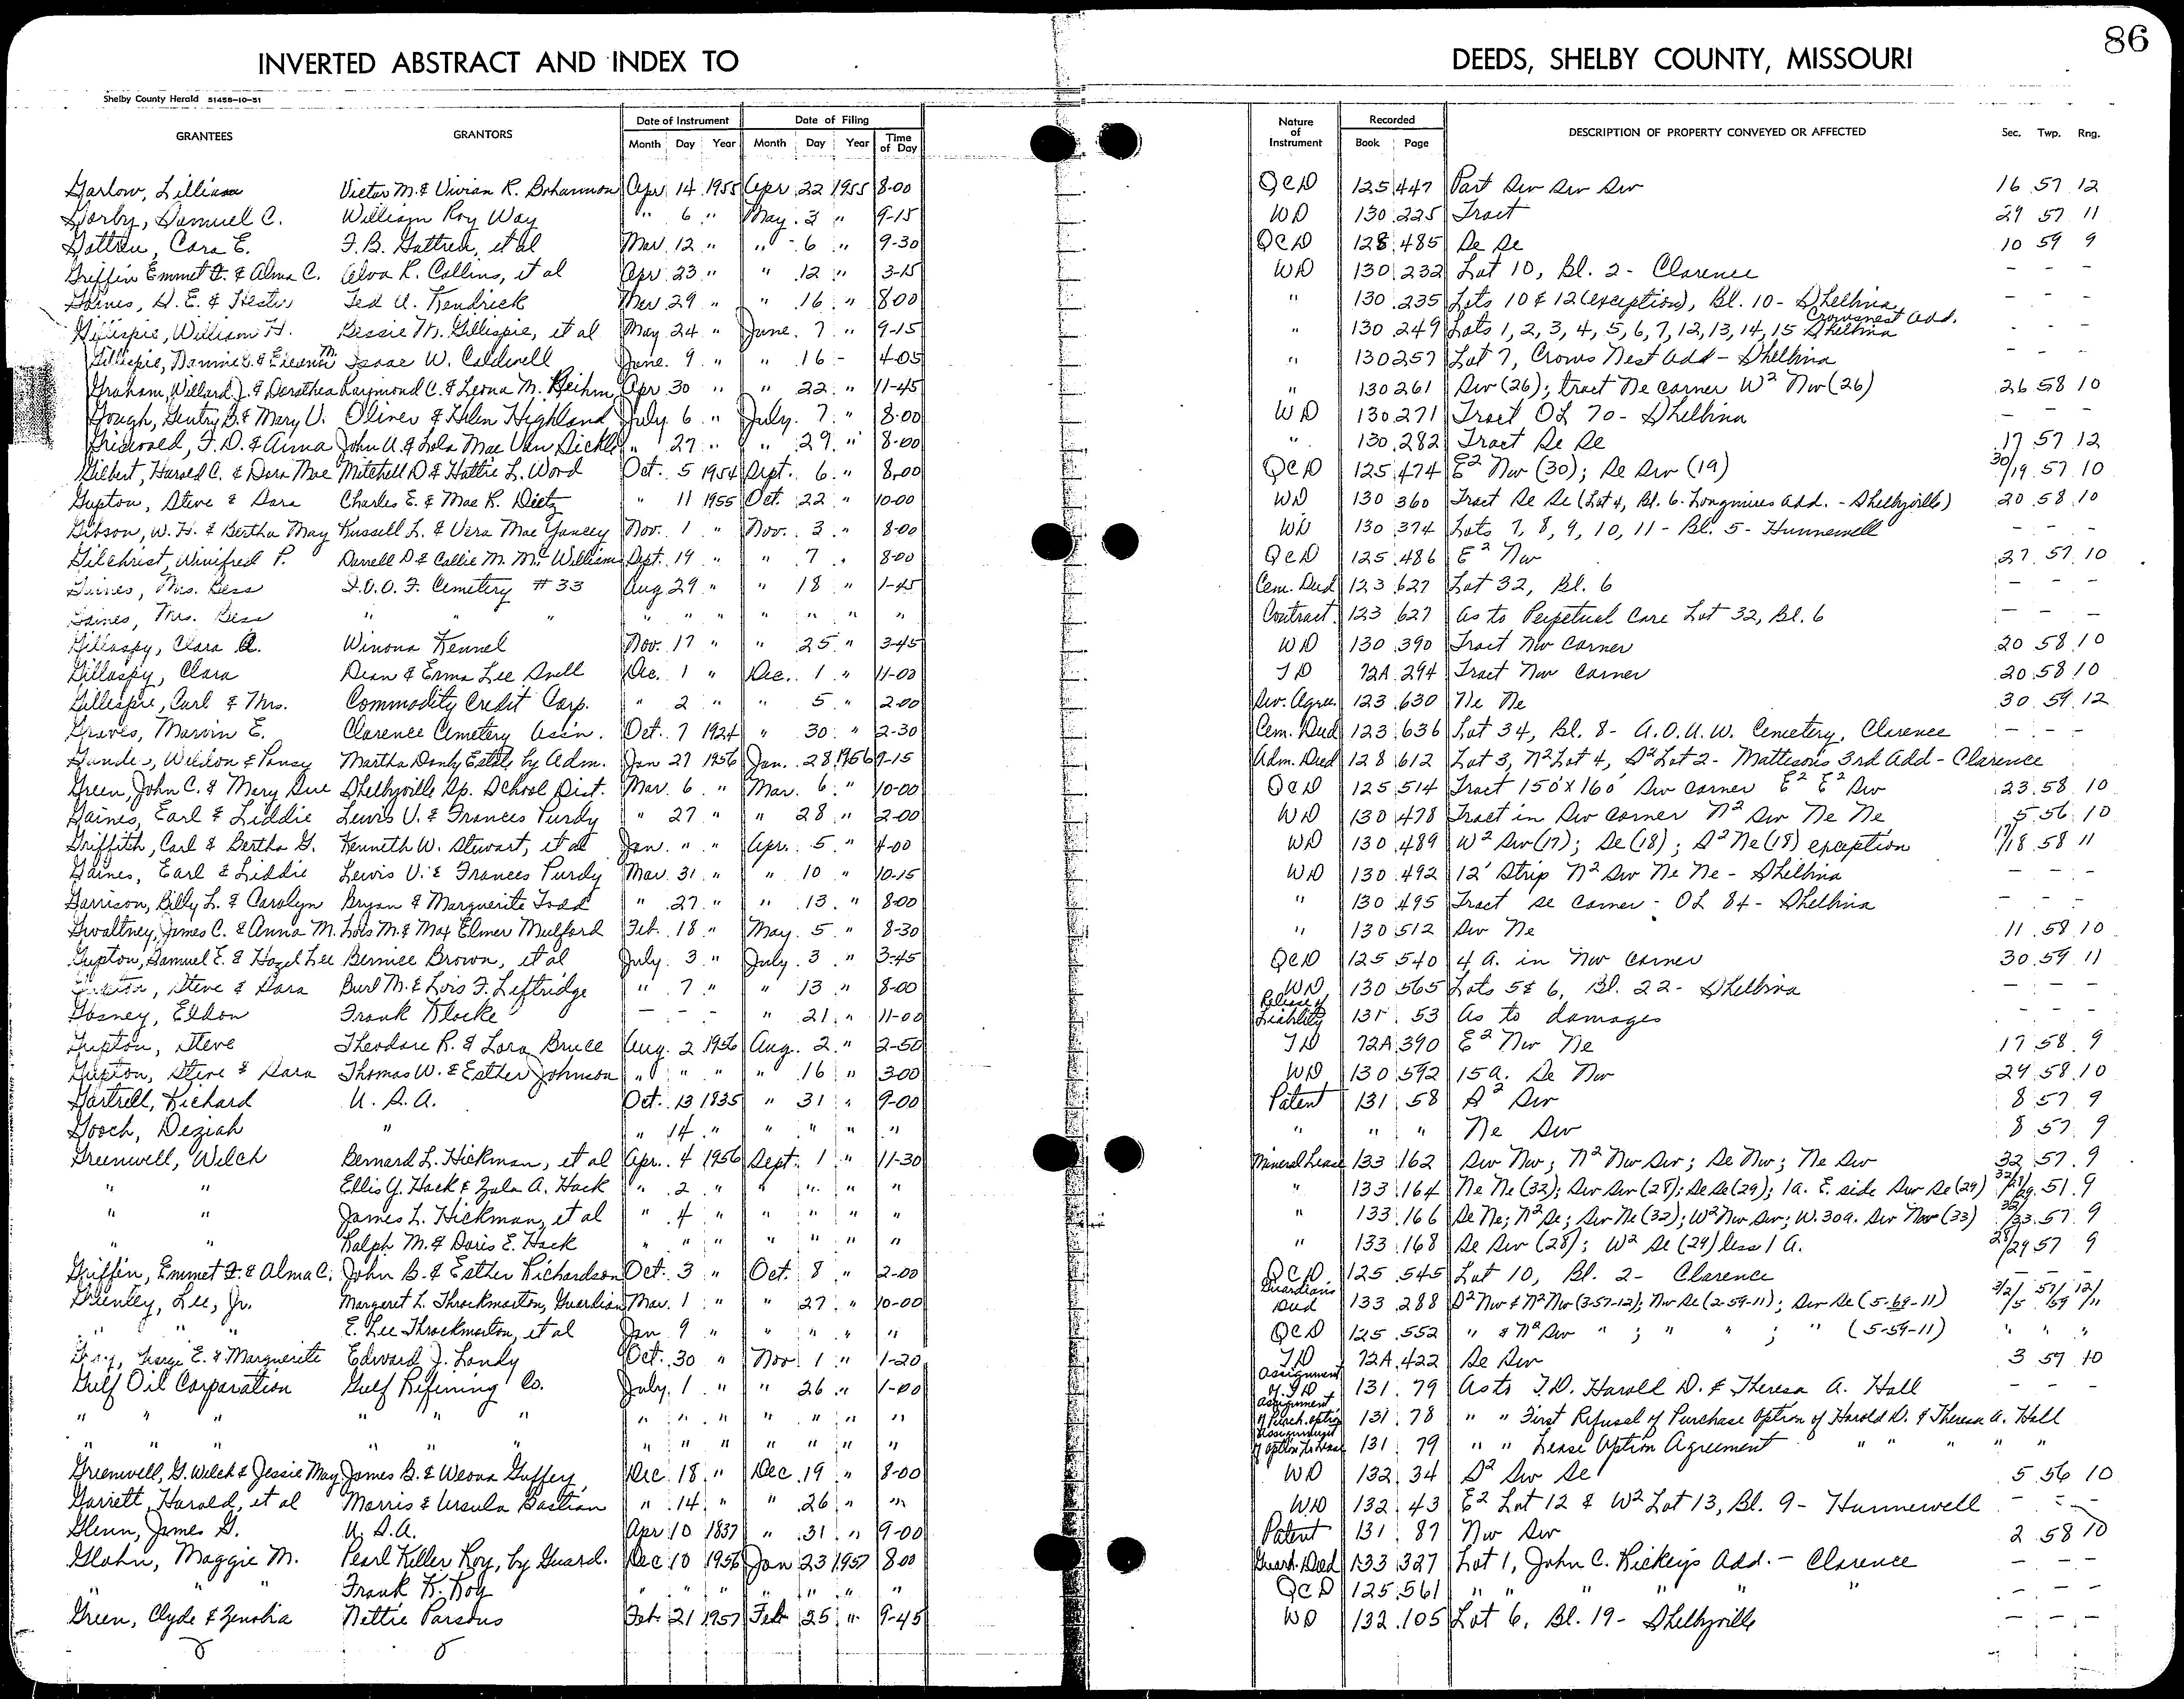 86
INVERTED ABSTRACT AND INDEX TO DEEDS, SHELBY COUNTY, MISSOURI
Shelby County Herald 51458-10-51
GRANTEES GRANTORS Date of Instrument Date of Filing Nature of Instrument Recorded DESCRIPTION OF PROPERTY CONVEYED OR AFFECTED Sec. Twp. Rng.
Month Day Year Month Day Year Time of Day Book Page
Garlow, Lillian Victor M. & Vivian R. Bohannon Apr 14 1955 Apr 22 1955 8-00 QCD 125 447 Part Sw Sw Sw 16 57 12
Gorby, Samuel C. William Roy Way " 6 " May 3 " 9-15 WD 130 225 Tract 29 57 11
Cora E. et al Mar 12 " " 6 " 9-30 QCD 128 485 Se Se 10 59 9
Griffin Emmet & Alma C. Alva R. Collins, et al Apr 23 " " 12 " 3-15 WD 130 232 Lot 10, Bl. 2 - Clarence - - -
Gaines, & Hester Ted U. Kendrick Mar 29 " " 16 " 8-00 " 130 235 Lots 10 & 12 (exception), Bl. 10 - Shelbina - - -
Gillispie, William H. Bessie M. Gillespie, et al May 24 " June 7 " 9-15 " 130 249 Lots 1, 2, 3, 4, 5, 6, 7, 12, 13, 14, 15 Crowsnest Add. Shelbina - - -
Gillispie, Isaac W. Caldwell June 9 " " 16 - 4-05 " 130 257 Lot 7, Crows Nest Add - Shelbina - - -
Graham, Willard J. & Dorothea Raymond C. & Leona M. Apr 30 " " 22 " 11-45 " 130 261 Sw (26); tract Ne corner W² Nw (26) 26 58 10
Gough, Gentry B. & Mary V. Oliver & Helen Highland July 6 " July 7 " 8-00 WD 130 271 Tract OL 70 - Shelbina - - -
Griswold, F. D. & Anna John U. & Lola Mae Van Sickle " 27 " " 29 " 8-00 " 130 282 Tract Se Se 17 57 12
Gilbert, Harold C. & Dora Mae Mitchell D & Hattie L. Word Oct. 5 1954 Sept. 6 " 8-00 QCD 125 474 E² Nw (30); Se Sw (19) 30/19 57 10
Gupton, Steve & Sara Charles E. & Mae R. Dietz " 11 1955 Oct. 22 " 10-00 WD 130 360 Tract Se Se (Lot 4, Bl. 6. Longmires Add. - Shelbyville) 20 58 10
Gibson, W. H. & Bertha May Russell L. & Vera Mae Yancey Nov. 1 " Nov. 3 " 8-00 WD 130 374 Lots 7, 8, 9, 10, 11 - Bl. 5 - Hunnewell - - -
Gilchrist, Winifred P. Darrell D & Callie M. McWilliams Sept. 19 " " 7 " 8-00 QCD 125 486 E² Nw 27 57 10
Gaines, Mrs. Bess I.O.O.F. Cemetery #33 Aug 29 " " 18 " 1-45 Cem. Deed 123 627 Lot 32, Bl. 6 - - -
Gaines, Mrs. Bess " " " " " " " " " " Contract 123 627 As to Perpetual Care Lot 32, Bl. 6 - - -
Gillaspy, Clara A. Winona Kennel Nov. 17 " " 25 " 3-45 WD 130 390 Tract Nw Corner 20 58 10
Gillaspy, Clara Dean & Erma Lee Snell Dec. 1 " Dec. 1 " 11-00 TD 72A 294 Tract Nw Corner 20 58 10
Gillespie, Carl & Mrs. Commodity Credit Corp. " 2 " " 5 " 2-00 Sev. Agree. 123 630 Ne Ne 30 59 12
Graves, Marvin E. Clarence Cemetery Assn. Oct. 7 1924 " 30 " 2-30 Cem. Deed 123 636 Lot 34, Bl. 8 - A.O.U.W. Cemetery, Clarence - - -
Weldon & Pansy Martha Estate by Adm. Jan 27 1956 Jan. 28 1956 9-15 Adm. Deed 128 612 Lot 3, N² Lot 4, S² Lot 2 - Mattesons 3rd Add - Clarence
Green, John C. & Mary Sue Shelbyville Sp. School Dist. Mar. 6 " Mar. 6 " 10-00 QCD 125 514 Tract 150' x 160' Sw corner E² E² Sw 23 58 10
Gaines, Earl & Liddie Lewis V. & Frances Purdy " 27 " " 28 " 2-00 WD 130 478 Tract in Sw corner N² Sw Ne Ne 5 56 10
Griffith, Carl & Bertha G. Kenneth W. Stewart, et al Jan. " " Apr. 5 " 4-00 WD 130 489 W² Sw (17); Se (18); S² Ne (18) exception 17/18 58 11
Gaines, Earl & Liddie Lewis V. & Frances Purdy Mar 31 " " 10 " 10-15 WD 130 492 12' Strip N² Sw Ne Ne - Shelbina - - -
Garrison, Billy L. & Carolyn Bryan & Marguerite Todd " 27 " " 13 " 8-00 " 130 495 Tract Se Corner - OL 84 - Shelbina - - -
Gwaltney, James C. & Anna M. Lois M. & Max Elmer Mulford Feb. 18 " May 5 " 8-30 " 130 512 Sw Ne 11 58 10
Gupton, Samuel E. & Hazel Lee Bernice Brown, et al July 3 " July 3 " 3-45 QCD 125 540 4 A. in Nw Corner 30 59 11
Gupton, Steve & Sara Burl M. & Lois F. Leftridge " 7 " " 13 " 8-00 WD 130 565 Lots 5 & 6, Bl. 22 - Shelbina - - -
Gosney, Eldon Frank Klocke - - - " 21 " 11-00 Release of Liability 131 53 As to damages - - -
Gupton, Steve Theodore R. & Lora Bruce Aug. 2 1956 Aug. 2 " 2-50 TD 72A 390 E² Nw Ne 17 58 9
Gupton, Steve & Sara Thomas W. & Esther Johnson " " " " 16 " 3-00 WD 130 592 15 A. Se Nw 29 58 10
Gartrell, Richard U. S. A. Oct. 13 1835 " 31 " 9-00 Patent 131 58 S² Sw 8 57 9
Gooch, Deziah " " 14 " " " " " " " " Ne Sw 8 57 9
Greenwell, Welch Bernard L. Hickman, et al Apr. 4 1956 Sept. 1 " 11-30 Mineral Lease 133 162 Sw Nw; N² Nw Sw; Se Nw; Ne Sw 32 57 9
" " Ellis Y. Hack & Zula A. Hack " 2 " " " " " " 133 164 Ne Ne (32); Sw Sw (28); Se Se (29); 1 A. E. side Sw Se (29) 51 9
" " James L. Hickman, et al " 4 " " " " " " 133 166 Se Ne; N² Se; Sw Ne (32); W² Nw Sw; W. 30 A. Sw Nw (33) 32/33 57 9
" " Ralph M. & Doris E. Hack " " " " " " " " 133 168 Se Sw (28); W² Se (29) less 1 A. 28/29 57 9
Griffin, Emmet & Alma C. John B. & Esther Richardson Oct. 3 " Oct. 8 " 2-00 QCD 125 545 Lot 10, Bl. 2 - Clarence - - -
Greenley, Lee, Jr. Margaret L. Throckmorton, Guardian Mar. 1 " " 27 " 10-00 Guardians Deed 133 288 S² Nw & N² Nw (3-57-12); Nw Se (2-59-11); Sw Se (5-69-11) 3/2/5 57/59 12/11
" " " E. Lee Throckmorton, et al Jan 9 " " " " " QCD 125 552 " & N² Sw " ; " ; " (5-59-11) " " "
Gray, George E. & Marguerite Edward J. Landy Oct. 30 " Nov. 1 " 1-20 TD 72A 422 Se Sw 3 57 10
Gulf Oil Corporation Gulf Refining Co. July 1 " " 26 " 1-00 Assignment of TD 131 79 As to T.D. Harold D. & Theresa A. Hall - - -
" " " " " " " " " " " " " Assignment of Purch. option 131 78 " " First Refusal of Purchase Option of Harold D. & Theresa A. Hall
" " " " " " " " " " " " " Assignment of Option to Lease 131 79 " " Lease Option Agreement " " " " "
Greenwell, G. Welch & Jessie May James B. & Weona Guffey Dec 18 " Dec 19 " 8-00 WD 132 34 S² Sw Se 5 56 10
Garrett, Harold, et al Morris & Ursula Bastian " 14 " " 26 " " WD 132 43 E² Lot 12 & W² Lot 13, Bl. 9 - Hunnewell - - -
Glenn, James G. U. S. A. Apr 10 1837 " 31 " 9-00 Patent 131 87 Nw Sw 2 58 10
Glahn, Maggie M. Pearl Keller Roy, by Guard. Dec 10 1956 Jan 23 1957 8-00 Guard. Deed 133 327 Lot 1, John C. Rickeys Add. - Clarence - - -
" " " Frank K. Roy " " " " " " " QCD 125 561 " " " " " " - - -
Green, Clyde & Zenobia Nettie Parsons Feb. 21 1957 Feb 25 " 9-45 WD 132 105 Lot 6, Bl. 19 - Shelbyville - - -